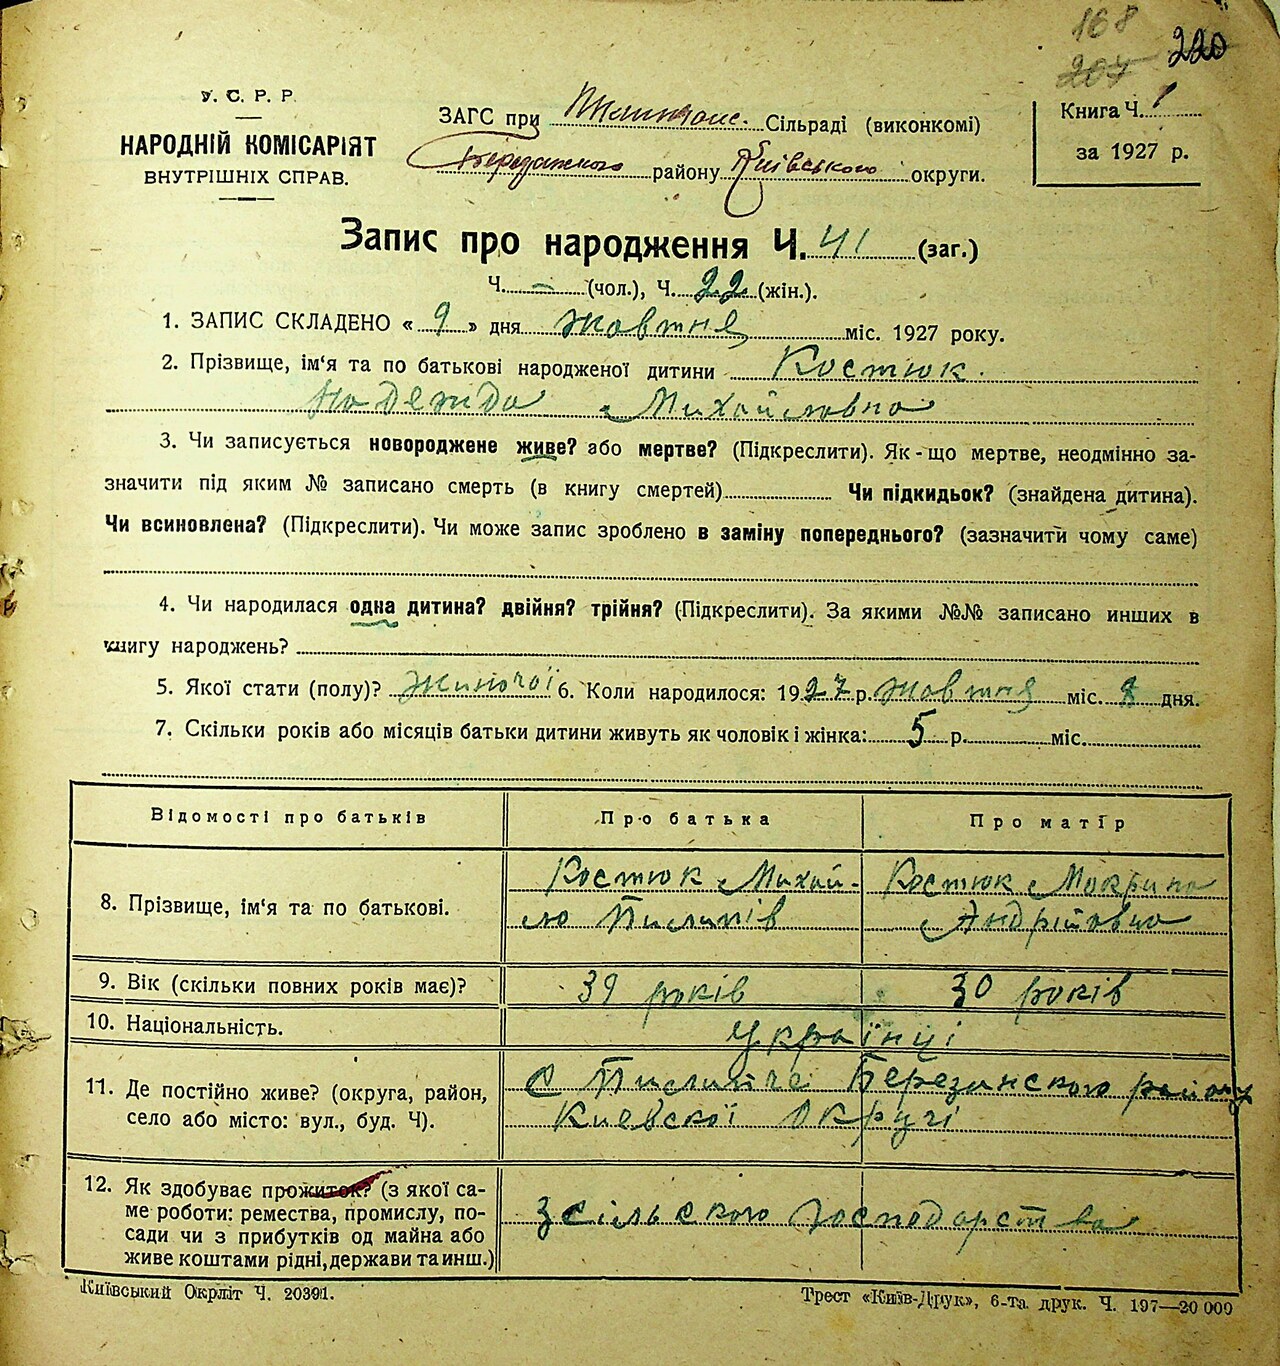 168
207
220
У. С. Р. Р.
НАРОДНІЙ КОМІСАРІЯТ
ВНУТРІШНІХ СПРАВ.
ЗАГС при Сільраді (виконкомі)
району Київського округи.
Книга Ч. 1
за 1927 р.
Запис про народження Ч. 41 (заг.)
Ч. — (чол.), Ч. 22 (жін.).
1. ЗАПИС СКЛАДЕНО « 9 » дня жовтня міс. 1927 року.
2. Прізвище, ім'я та по батькові народженої дитини Костюк.
Надежда Михайловна
3. Чи записується новороджене живе? або мертве? (Підкреслити). Як-що мертве, неодмінно за-
значити під яким № записано смерть (в книгу смертей) Чи підкидьок? (знайдена дитина).
Чи всиновлена? (Підкреслити). Чи може запис зроблено в заміну попереднього? (зазначити чому саме)
4. Чи народилася одна дитина? двійня? трійня? (Підкреслити). За якими №№ записано инших в
книгу народжень?
5. Якої стати (полу)? Жиночої 6. Коли народилося: 1927 р. жовтня міс. 8 дня.
7. Скільки років або місяців батьки дитини живуть як чоловік і жінка: 5 р. міс.
Відомості про батьків Про батька Про матір
8. Прізвище, ім'я та по батькові.
Костюк Михай-
ло Пилипів
Костюк Мокрина
Андрійовна
9. Вік (скільки повних років має)? 39 років 30 років
10. Національність. Українці
11. Де постійно живе? (округа, район,
село або місто: вул., буд. Ч).
с Пилипче Березанского району
Киевскої Округі
12. Як здобуває прожиток? (з якої са-
ме роботи: ремества, промислу, по-
сади чи з прибутків од майна або
живе коштами рідні, держави та инш.)
З сільского господарства
Київський Окрліт Ч. 20391.
Трест «Київ-Друк», 6-та друк. Ч. 197—20 000